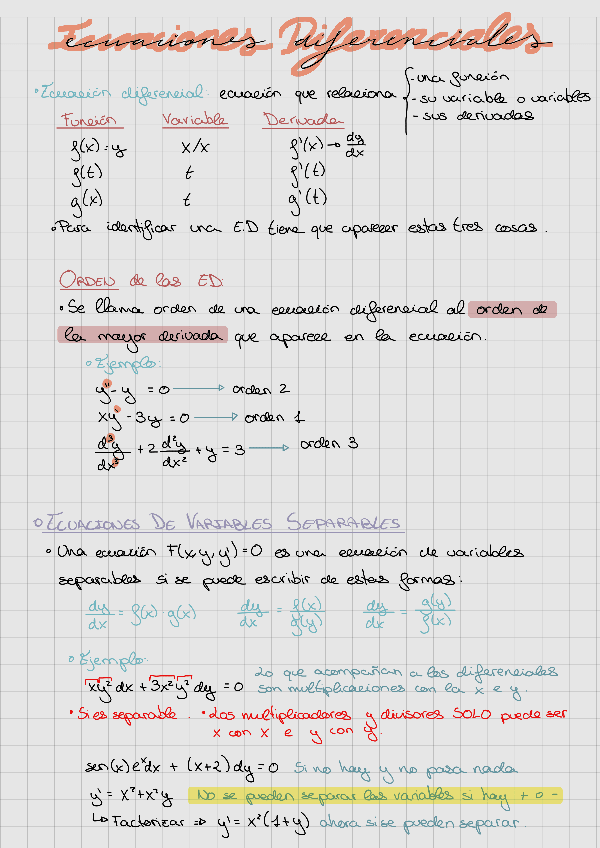 Ecuaciones Diferenciales
• Ecuación diferencial: ecuación que relaciona
- una función
- su variable o variables
- sus derivadas
Función Variable Derivada
f(x) = y x/x f'(x) → dy/dx
f(t) t f'(t)
g(x) t g'(t)
• Para identificar una E.D tiene que aparecer estas tres cosas.
ORDEN de las ED:
• Se llama orden de una ecuación diferencial al orden de
la mayor derivada que aparece en la ecuación.
• Ejemplo:
y'' - y = 0 → orden 2
xy' - 3y = 0 → orden 1
d³y/dx³ + 2 d²y/dx² + y = 3 → orden 3
• ECUACIONES DE VARIABLES SEPARABLES
• Una ecuación F(x,y,y') = 0 es una ecuación de variables
separables si se puede escribir de estas formas:
dy/dx = f(x) · g(x) dy/dx = f(x)/f(y) dy/dx = g(y)/f(x)
• Ejemplo:
Lo que acompañan a las diferenciales
xy² dx + 3x² y² dy = 0 son multiplicaciones con la x e y.
• Si es separable. • Los multiplicadores y divisores SOLO puede ser
x con x e y con y.
sen(x) eˣ dx + (x+2) dy = 0 Si no hay y no pasa nada
y' = x² + x² y No se pueden separar las variables si hay + o -
↳ Factorizar ⇒ y' = x² (1+y) ahora si se pueden separar.